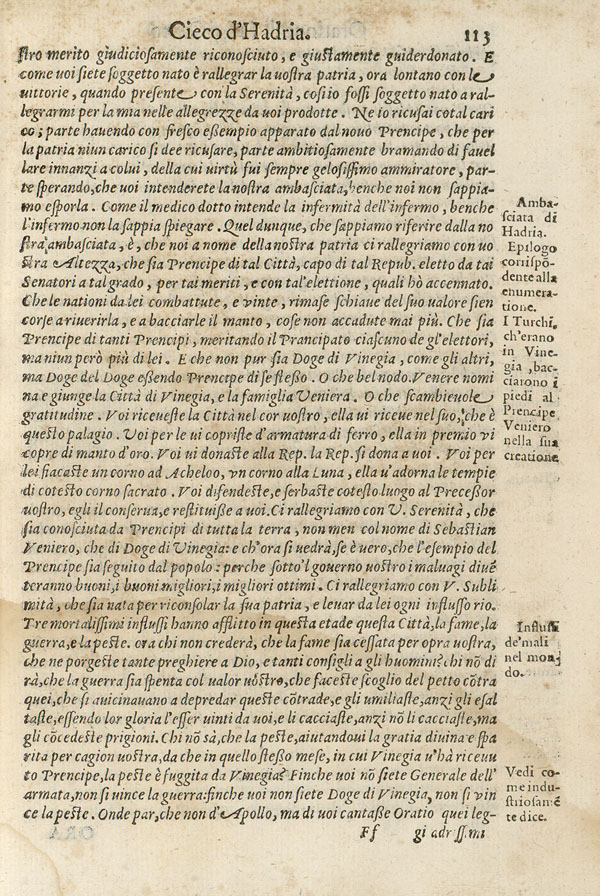 Cieco d'Hadria. 113
stro merito giudiciosamente riconosciuto, e giustamente guiderdonato. E
come uoi siete soggetto nato è rallegrar la uostra patria, ora lontano con le
uittorie, quando presente con la Serenità, cosi io fossi soggetto nato a ral-
legrarmi per la mia nelle allegrezze da uoi prodotte. Ne io ricusai cotal cari
co; parte hauendo con fresco essempio apparato dal nouo Prencipe, che per
la patria niun carico si dee ricusare, parte ambitiosamente bramando di fauel
lare innanzi a colui, della cui uirtù fui sempre gelosissimo ammiratore, par-
te sperando, che uoi intenderete la nostra ambasciata, benche noi non sappia-
mo esporla. Come il medico dotto intende la infermità dell'infermo, benche
l'infermo non la sappia spiegare. Quel dunque, che sappiamo riferire dalla no
stra ambasciata, è, che noi a nome della nostra patria ci rallegriamo con uo
stra Altezza, che sia Prencipe di tal Città, capo di tal Repub. eletto da tai
Senatori a tal grado, per tai meriti, e con tal'elettione, quali hò accennato.
Che le nationi da lei combattute, e uinte, rimase schiaue del suo ualore sien
corse a riuerirla, e a bacciarle il manto, cose non accadute mai più. Che sia
Prencipe di tanti Prencipi, meritando il Prancipato ciascuno de gl'elettori,
ma niun però più di lei. E che non pur sia Doge di Vinegia, come gli altri,
ma Doge del Doge essendo Prencipe di se stesso. O che bel nodo. Venere nomi
na e giunge la Città di Vinegia, e la famiglia Veniera. O che scambieuole
gratitudine. Voi riceueste la Città nel cor uostro, ella ui riceue nel suo, che è
questo palagio. Voi per le ui copriste d'armatura di ferro, ella in premio vi
copre di manto d'oro. Voi ui donaste alla Rep. la Rep. si dona a uoi. Voi per
lei fiacaste un corno ad Acheloo, vn corno alla Luna, ella u'adorna le tempie
di cotesto corno sacrato. Voi difendeste, e serbaste cotesto luogo al Precessor
uostro, egli il conserua, e restituisse a uoi. Ci rallegriamo con V. Serenità, che
sia conosciuta da Prencipi di tutta la terra, non men col nome di Sebastian
Veniero, che di Doge di Vinegia: e ch'ora si uedrà, se è uero, che l'esempio del
Prencipe sia seguito dal popolo: perche sotto'l gouerno uostro i maluagi diuē
teranno buoni, i buoni migliori, i migliori ottimi. Ci rallegriamo con V. Subli
mità, che sia nata per riconsolar la sua patria, e leuar da lei ogni influsso rio.
Tre mortalissimi influssi hanno afflitto in questa etade questa Città, la fame, la
guerra, e la peste. ora chi non crederà, che la fame sia cessata per opra uostra,
che ne porgeste tante preghiere a Dio, e tanti consigli a gli huomini? chi nō di
rà, che la guerra sia spenta col ualor uostro, che faceste scoglio del petto cōtra
quei, che si auicinauano a depredar queste cōtrade, e gli umiliaste, anzi gli esal
taste, essendo lor gloria l'esser uinti da uoi, e li cacciaste, anzi nō li cacciaste, ma
gli cōcedeste prigioni. Chi nō sà, che la peste, aiutandoui la gratia diuina e spa
rita per cagion uostra, da che in quello stesso mese, in cui Vinegia u'hà riceuu
to Prencipe, la peste è fuggita da Vinegia? Finche uoi nō siete Generale dell'
armata, non si uince la guerra: finche uoi non siete Doge di Vinegia, non si vin
ce la peste. Onde par, che non d'Apollo, ma di uoi cantasse Oratio quei leg-
Ff gi adrissimi
Amba-
sciata di
Hadria.
Epilogo
corrispō-
dente alla
enumera-
tione.
I Turchi,
ch'erano
in Vine-
gia, bac-
ciarono i
piedi al
Prencipe
Veniero
nella sua
creatione
Influssi
de'mali
nel mon-
do.
Vedi co-
me indu-
striosamē
te dice.